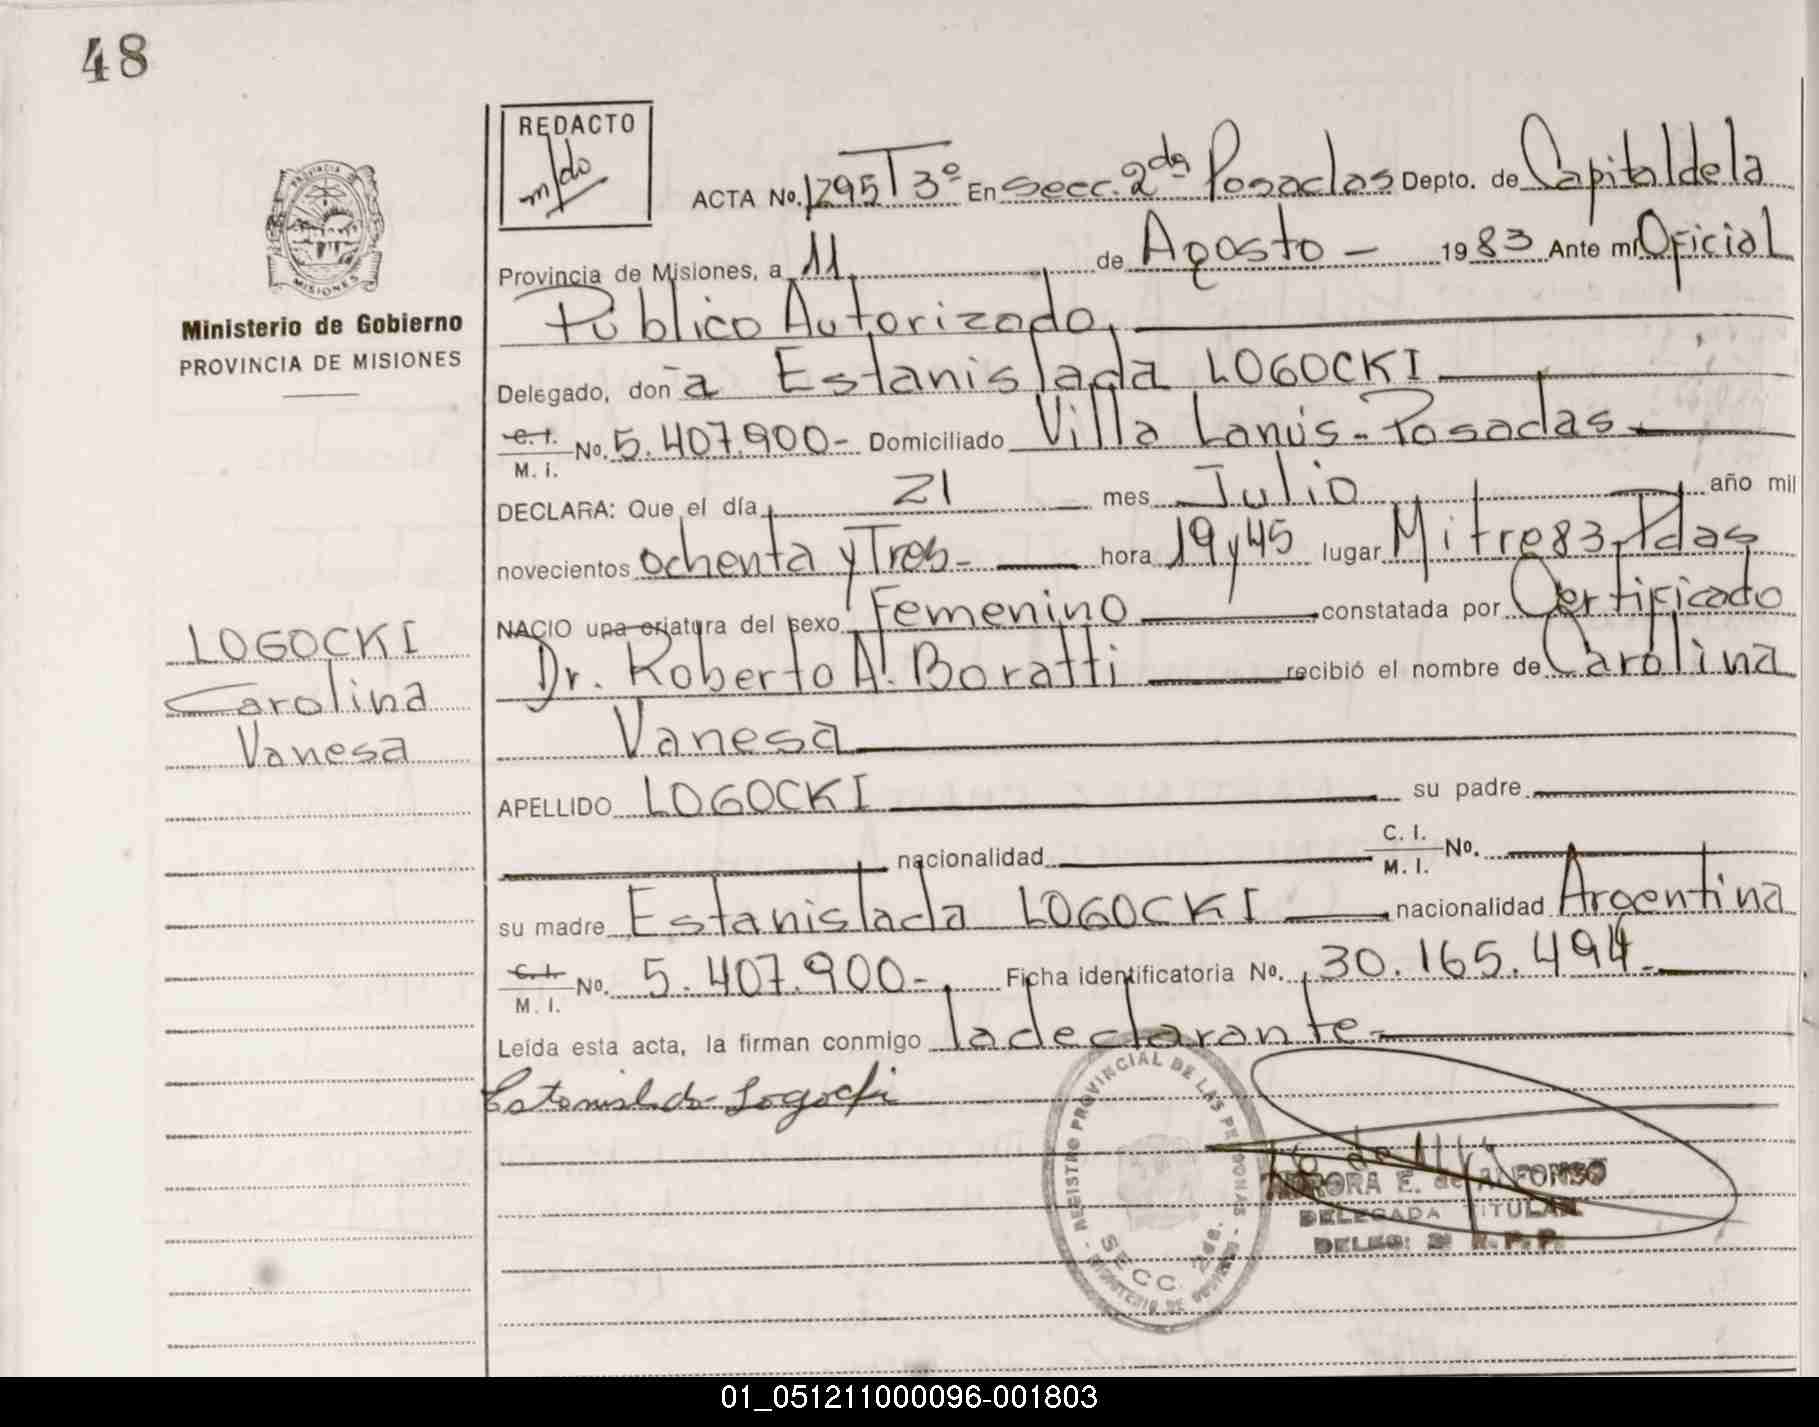 48
REDACTO
m/do
ACTA No. 1295 T 3º En Secc. 2da Posadas Depto. de Capital de la
Provincia de Misiones, a 11 de Agosto - 1983 Ante mi Oficial
Público Autorizado,
Delegado, don a Estanislada LOGOCKI
C. I. / M. I. No. 5.407.900- Domiciliado Villa Lanús - Posadas
DECLARA: Que el día 21 mes Julio año mil
novecientos ochenta y Tres - hora 19 y 45 lugar Mitre 83, Pdas
NACIO una criatura del sexo Femenino constatada por Certificado
Dr. Roberto A. Boratti recibió el nombre de Carolina
Vanesa
APELLIDO LOGOCKI su padre
nacionalidad C. I. / M. I. No.
su madre Estanislada LOGOCKI nacionalidad Argentina
C. I. / M. I. No. 5.407.900- Ficha identificatoria No. 30.165.494-
Leída esta acta, la firman conmigo la declarante-
Estanislada Logocki
REGISTRO PROVINCIAL DE LAS PERSONAS
SECC. 2da.
AURORA E. de ALFONSO
DELEGADA TITULAR
DELEG: 2 R. P. P.
PROVINCIA DE
MISIONES
Ministerio de Gobierno
PROVINCIA DE MISIONES
LOGOCKI
Carolina
Vanesa
01_051211000096-001803